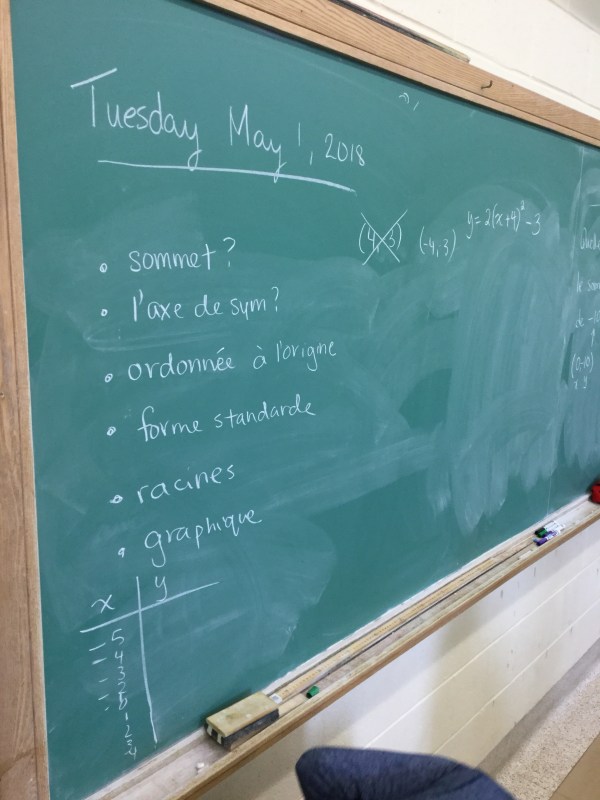 Tuesday May 1, 2018
(4,3) (-4,3) y = 2(x+4)² - 3
• sommet?
• l'axe de sym?
• ordonnée à l'origine
• forme standarde
• racines
• graphique
x y
-5
-4
-3
Quelle
le som
de -10
(0,-10)
x y